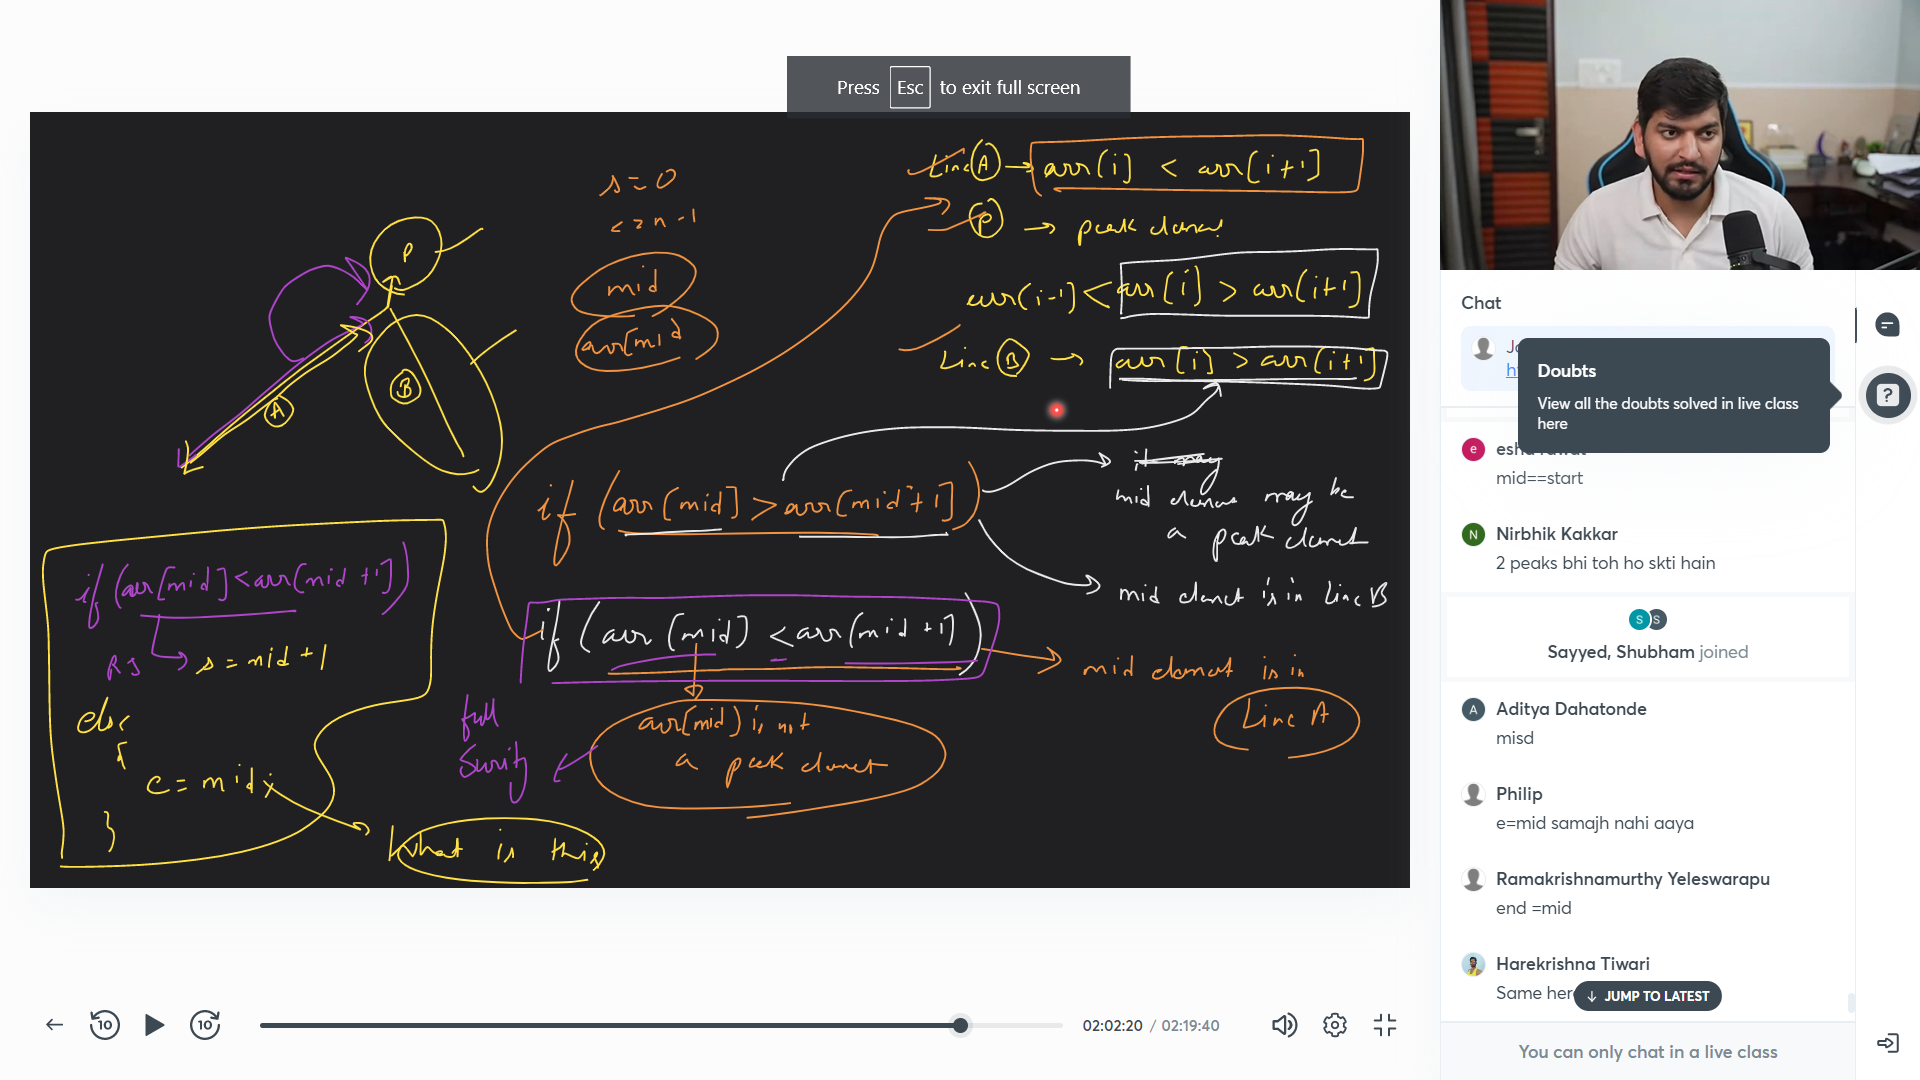 Press Esc to exit full screen
s = 0
mid
arr[mid
P
A
B
Line A → arr[i] < arr[i+1]
P → peak
arr[i-1] < arr[i] > arr[i+1]
Line B → arr[i] > arr[i+1]
if (arr[mid] > arr[mid+1])
it may
mid may be
a peak
mid is in Line B
if (arr[mid] < arr[mid+1])
mid element is in
Line A
arr[mid] is not
a peak
full
if (arr[mid] < arr[mid+1])
RS → s = mid + 1
else
{
e = mid;
}
What is this
Chat
Doubts
View all the doubts solved in live class
here
mid==start
Nirbhik Kakkar
2 peaks bhi toh ho skti hain
S S
Sayyed, Shubham joined
Aditya Dahatonde
misd
Philip
e=mid samajh nahi aaya
Ramakrishnamurthy Yeleswarapu
end =mid
Harekrishna Tiwari
Same her
JUMP TO LATEST
You can only chat in a live class
10
10
02:02:20 / 02:19:40